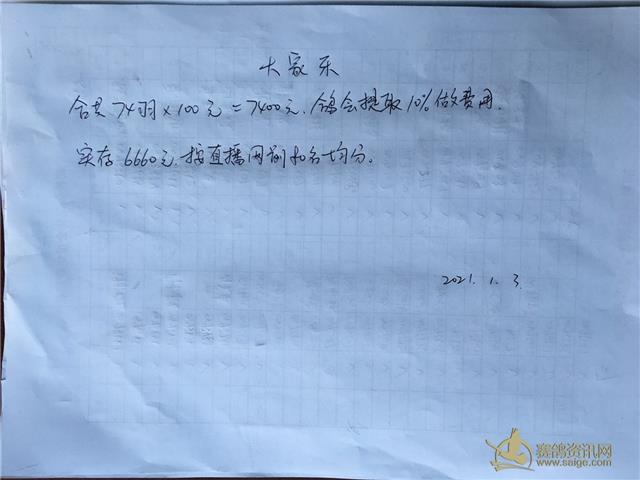 大家乐
合共74羽×100元=7400元.鸽会提取10%做费用.
实存6660元.按直播网前20名均分。
2021.1.3.
赛鸽资讯网
www.saige.com